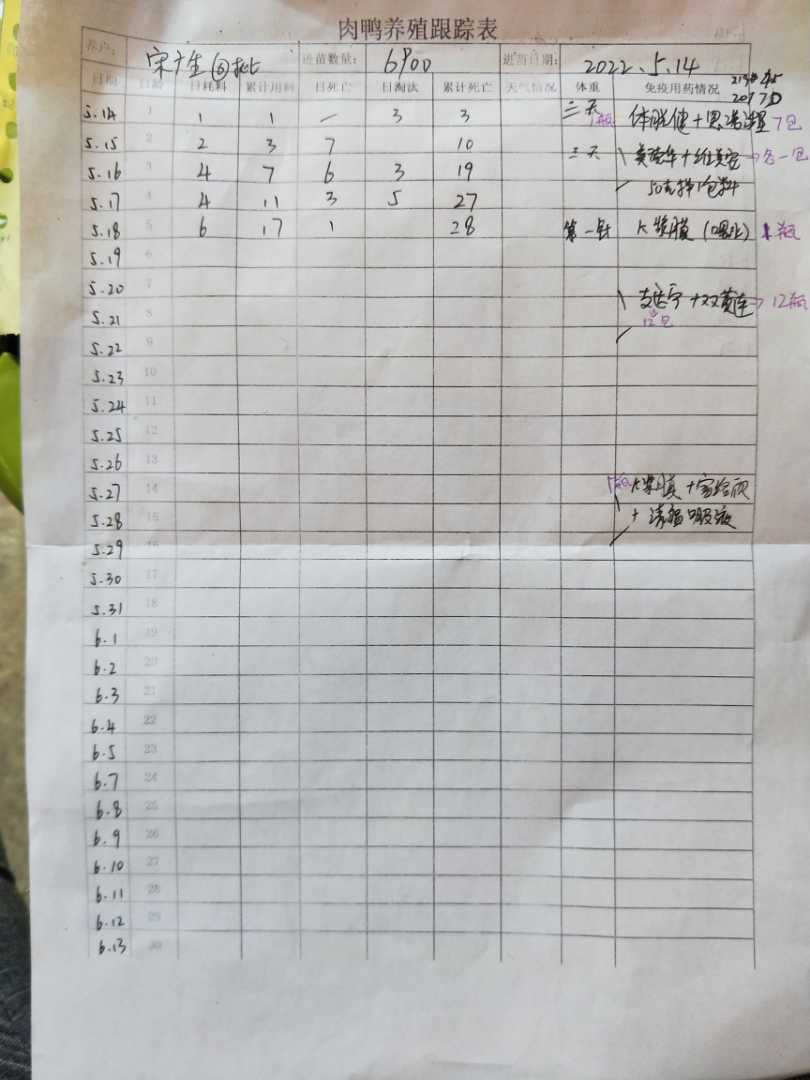 肉鸭养殖跟踪表
养户： 宋广生 进苗数量： 6900 进苗日期： 2022.5.14
日期 日龄 日耗料 累计用料 日死亡 日淘汰 累计死亡 天气情况 体重 免疫用药情况
5.14 1 1 1 — 3 3 三天 7包
5.15 2 2 3 7 10 三天 各一包
5.16 3 4 7 6 3 19
5.17 4 4 11 3 5 27
5.18 5 6 17 1 28 第一针 瓶
5.19 6
5.20 7 + 双黄连 12瓶
5.21 8 12包
5.22 9
5.23 10
5.24 11
5.25 12
5.26 13
5.27 14
5.28 15
5.29 16
5.30 17
5.31 18
6.1 19
6.2 20
6.3 21
6.4 22
6.5 23
6.7 24
6.8 25
6.9 26
6.10 27
6.11 28
6.12 29
6.13 30